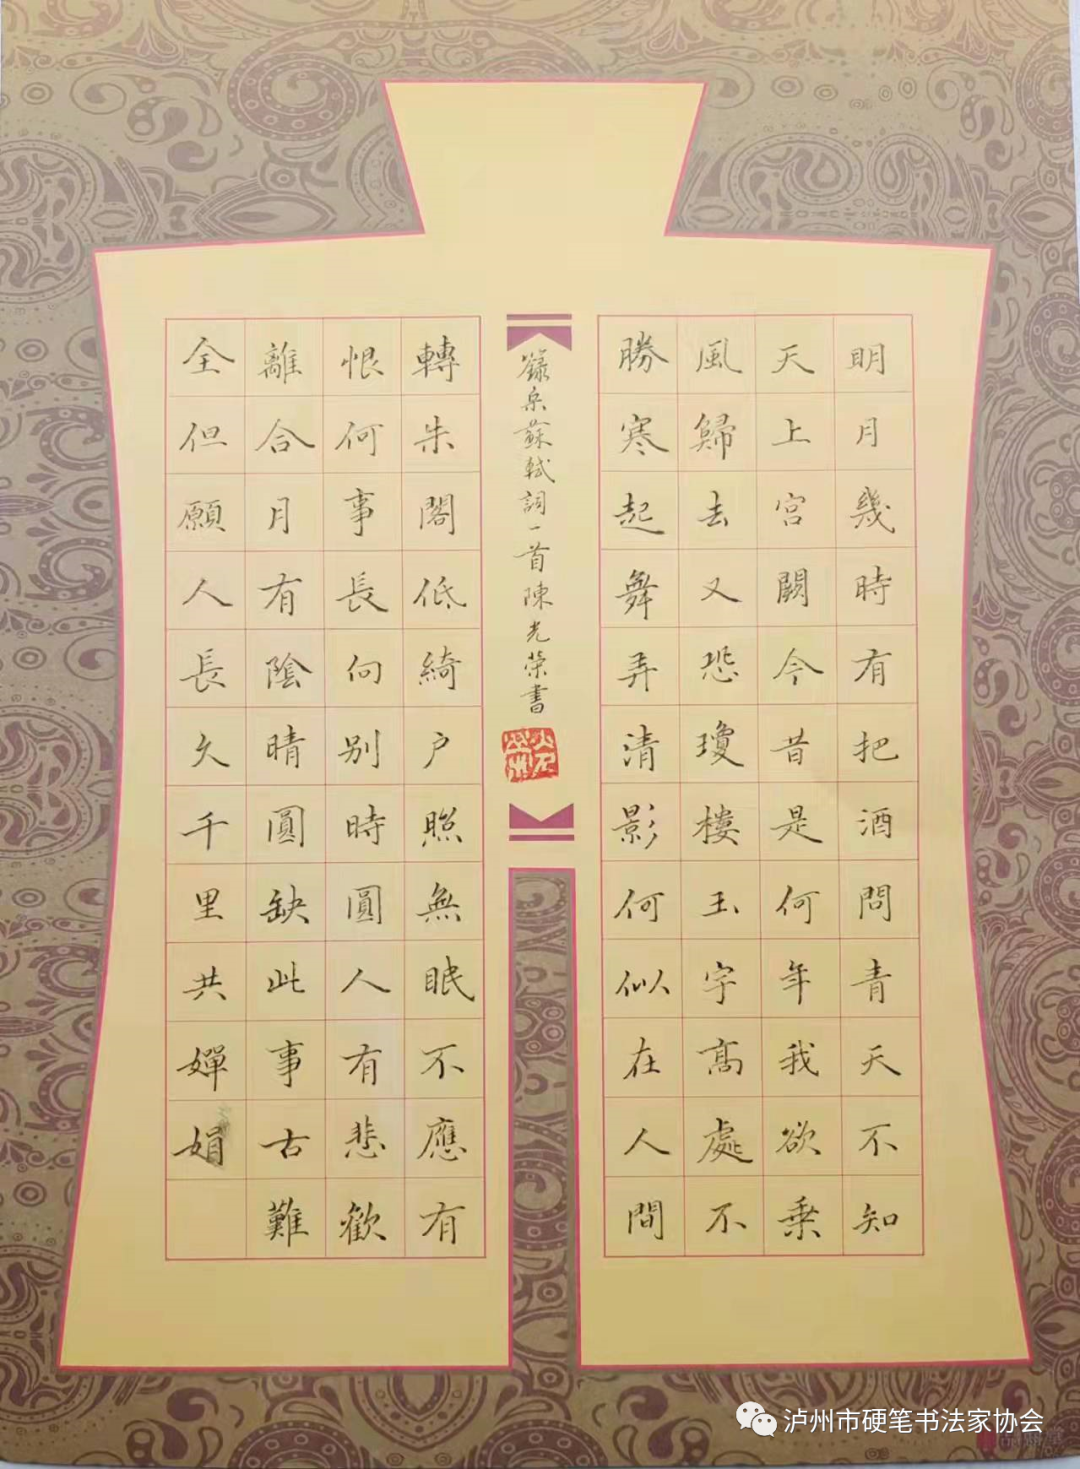 明月幾時有把酒問青天不知
天上宮闕今昔是何年我欲乗
風歸去又恐瓊樓玉宇高處不
勝寒起舞弄清影何似在人間
籙宋蘇軾詞一首陳光榮書
轉朱閣低綺户照無眠不應有
恨何事長向別時圓人有悲歡
離合月有陰晴圓缺此事古難
全但願人長久千里共嬋娟
泸州市硬笔书法家协会